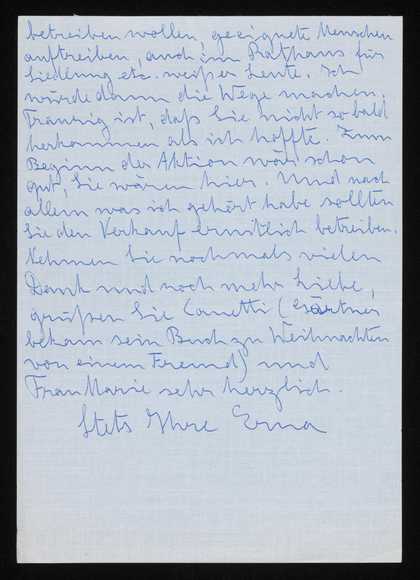 betreiben wollen, geeignete Menschen
auftreiben, auch im Rathaus für
Siedlung etc. weißer Leute. Ich
würde dann die Wege machen.
Traurig ist, daß Sie nicht so bald
herkommen als ich hoffte. Zum
Beginn der Aktion wär's schon
gut, Sie wären hier. Und nach
allem was ich gehört habe sollten
Sie den Verkauf ernstlich betreiben.
Nehmen Sie nochmals vielen
Dank und noch mehr Liebe,
grüßen Sie Canetti (Gärtner
bekam sein Buch zu Weihnachten
von einem Freund) und
Frau Marie sehr herzlich.
Stets Ihre Erna